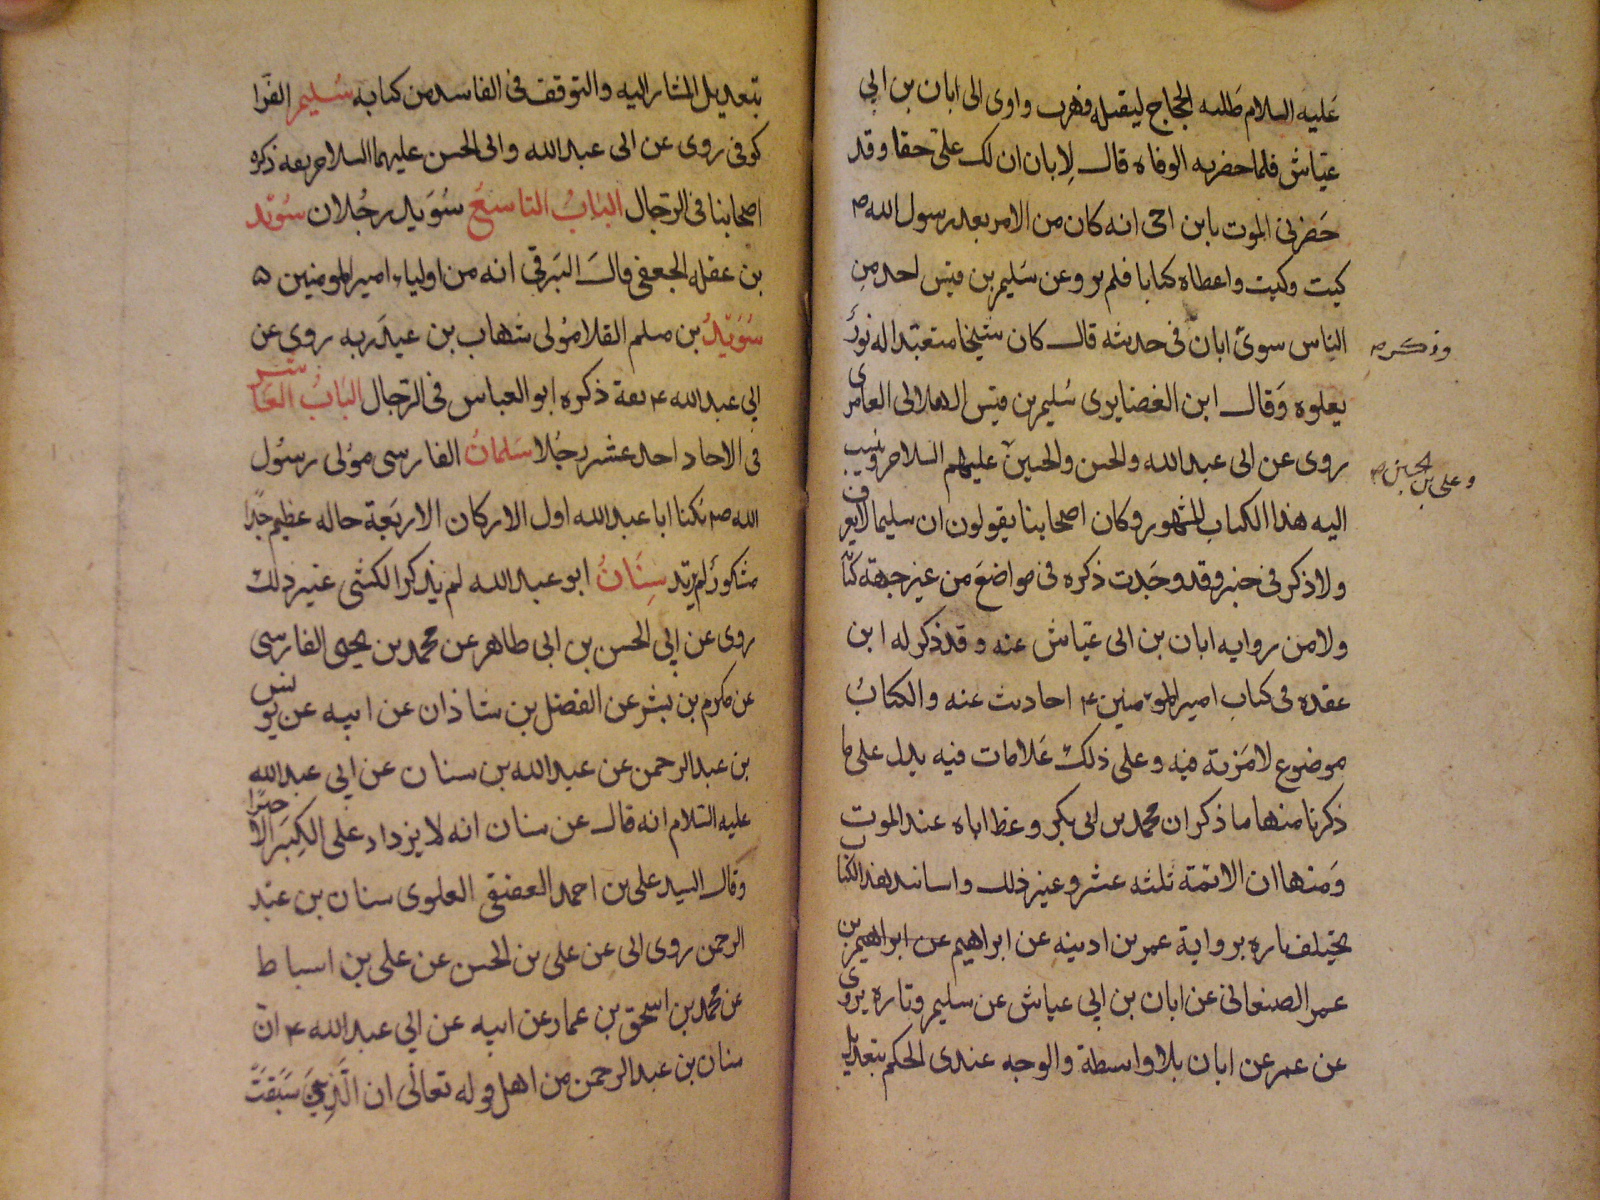 عليه السلام طلبه الحجاج ليقتله فهرب واوى الى ابان بن ابي
عياش فلما حضرته الوفاه قال لابان ان لك على حقا وقد
حضرنى الموت يابن اخى انه كان من الامر بعد رسول الله ص
كيت وكيت واعطاه كتابا فلم يرو عن سليم بن قيس احد من
الناس سوى ابان فى حديثه قال كان شيخا متعبدا له نور
وذكر
يعلوه وقال ابن الغضايرى سليم بن قيس الهلالى العامرى
روى عن ابى عبد الله والحسن والحسين عليهم السلام وينسب
وعلى بن الحسين
اليه هذا الكتاب المشهور وكان اصحابنا يقولون ان سليما لايعرف
ولا ذكر فى خبر وقد وجدت ذكره فى مواضع من غير جهة كتابه
ولا من روايه ابان بن ابى عياش عنه وقد ذكر له ابن
عقده فى كتاب امير المومنين ع احاديث عنه والكتاب
موضوع لا مرية فيه وعلى ذلك علامات فيه يدل على ما
ذكرنا منها ما ذكر ان محمد بن ابى بكر وعظ اباه عند الموت
ومنها ان الائمة ثلثه عشر وغير ذلك واسانيد هذا الكتاب
يختلف تاره برواية عمر بن اذينه عن ابراهيم عن ابراهيم بن
عمر الصنعانى عن ابان بن ابي عياش عن سليم وتاره يروى
عن عمر عن ابان بلا واسطة والوجه عندى الحكم بتعديل
بتعديل المشار اليه والتوقف فى الفاسد من كتابه سليم الفرا
كوفى روى عن ابى عبد الله وابى الحسن عليهما السلام ثقه ذكره
اصحابنا فى الرجال الباب التاسع سويد رجلان سويد
بن غفله الجعفى قال البرقي انه من اولياء امير المومنين ه
سويد بن مسلم القلا مولى شهاب بن عبد ربه روى عن
ابي عبد الله ع ثقة ذكره ابو العباس فى الرجال الباب العاشر
فى الاحاد احد عشر رجلا سلمان الفارسى مولى رسول
الله ص يكنا ابا عبد الله اول الاركان الاربعة حاله عظيم جدا
مشكور لم يرتد سنان ابو عبد الله لم يذكر الكشى غير ذلك
روى عن ابي الحسن بن ابى طاهر عن محمد بن يحيى الفارسى
عن مكرم بن بشر عن الفضل بن شاذان عن ابيه عن يونس
بن عبد الرحمن عن عبد الله بن سنان عن ابي عبد الله
عليه السلام انه قال عن سنان انه لا يزداد على الكبر الا خيرا
وقال السيد على بن احمد العقيقى العلوى سنان بن عبد
الرحمن روى ابى عن على بن الحسن عن على بن اسباط
عن محمد بن اسحق بن عمار عن ابيه عن ابي عبد الله ع ان
سنان بن عبد الرحمن من اهل قوله تعالى ان الذين سبقت